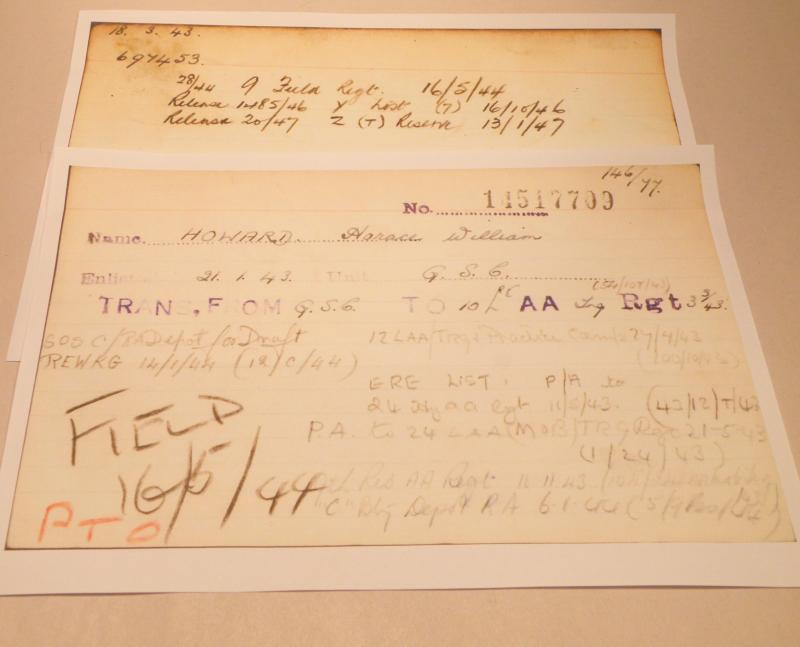 18. 3. 43.
697453.
28/44 9 Field Regt. 16/5/44
Release 1485/46 Y List (T) 16/10/46
Release 20/47 Z (T) Reserve 13/1/47
146/77.
No. 14517709
Name. HOWARD Horace William
Enlisted 21. 1. 43. Unit G. S. C.
TRANS. FROM G.S.C. TO 10 Lt AA Trg Rgt 3/3/43.
SOS C/RA Depot/on Draft
12 LAA/Trg Practice Camp 27/4/43
REWKG 14/1/44 (12/C/44)
ERE LIST. P/A to
24 AA Rgt 11/5/43. (43/12/T/43
FIELD
P.A. to 24 LAA (MOB) TRG Rgt 21-5-43
(1/24/43)
16/5/44
Res AA Regt 11 11 43
"C" Depot RA 6.1.
PTO